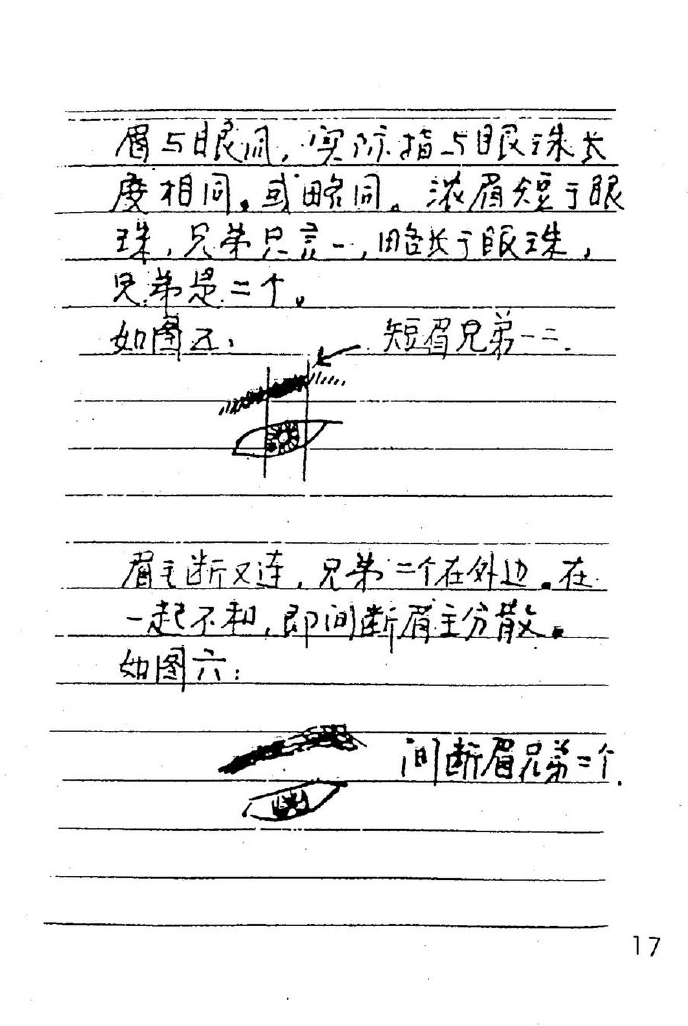 眉与眼同，实际指与眼珠长
度相同。或略同。浓眉短于眼
珠，兄弟只言一，略长于眼珠，
兄弟是二个。
如图五： 短眉兄弟一二.
眉主断又连，兄弟二个在外边。在
一起不和，即间断眉主分散。
如图六：
间断眉兄弟二个.
17